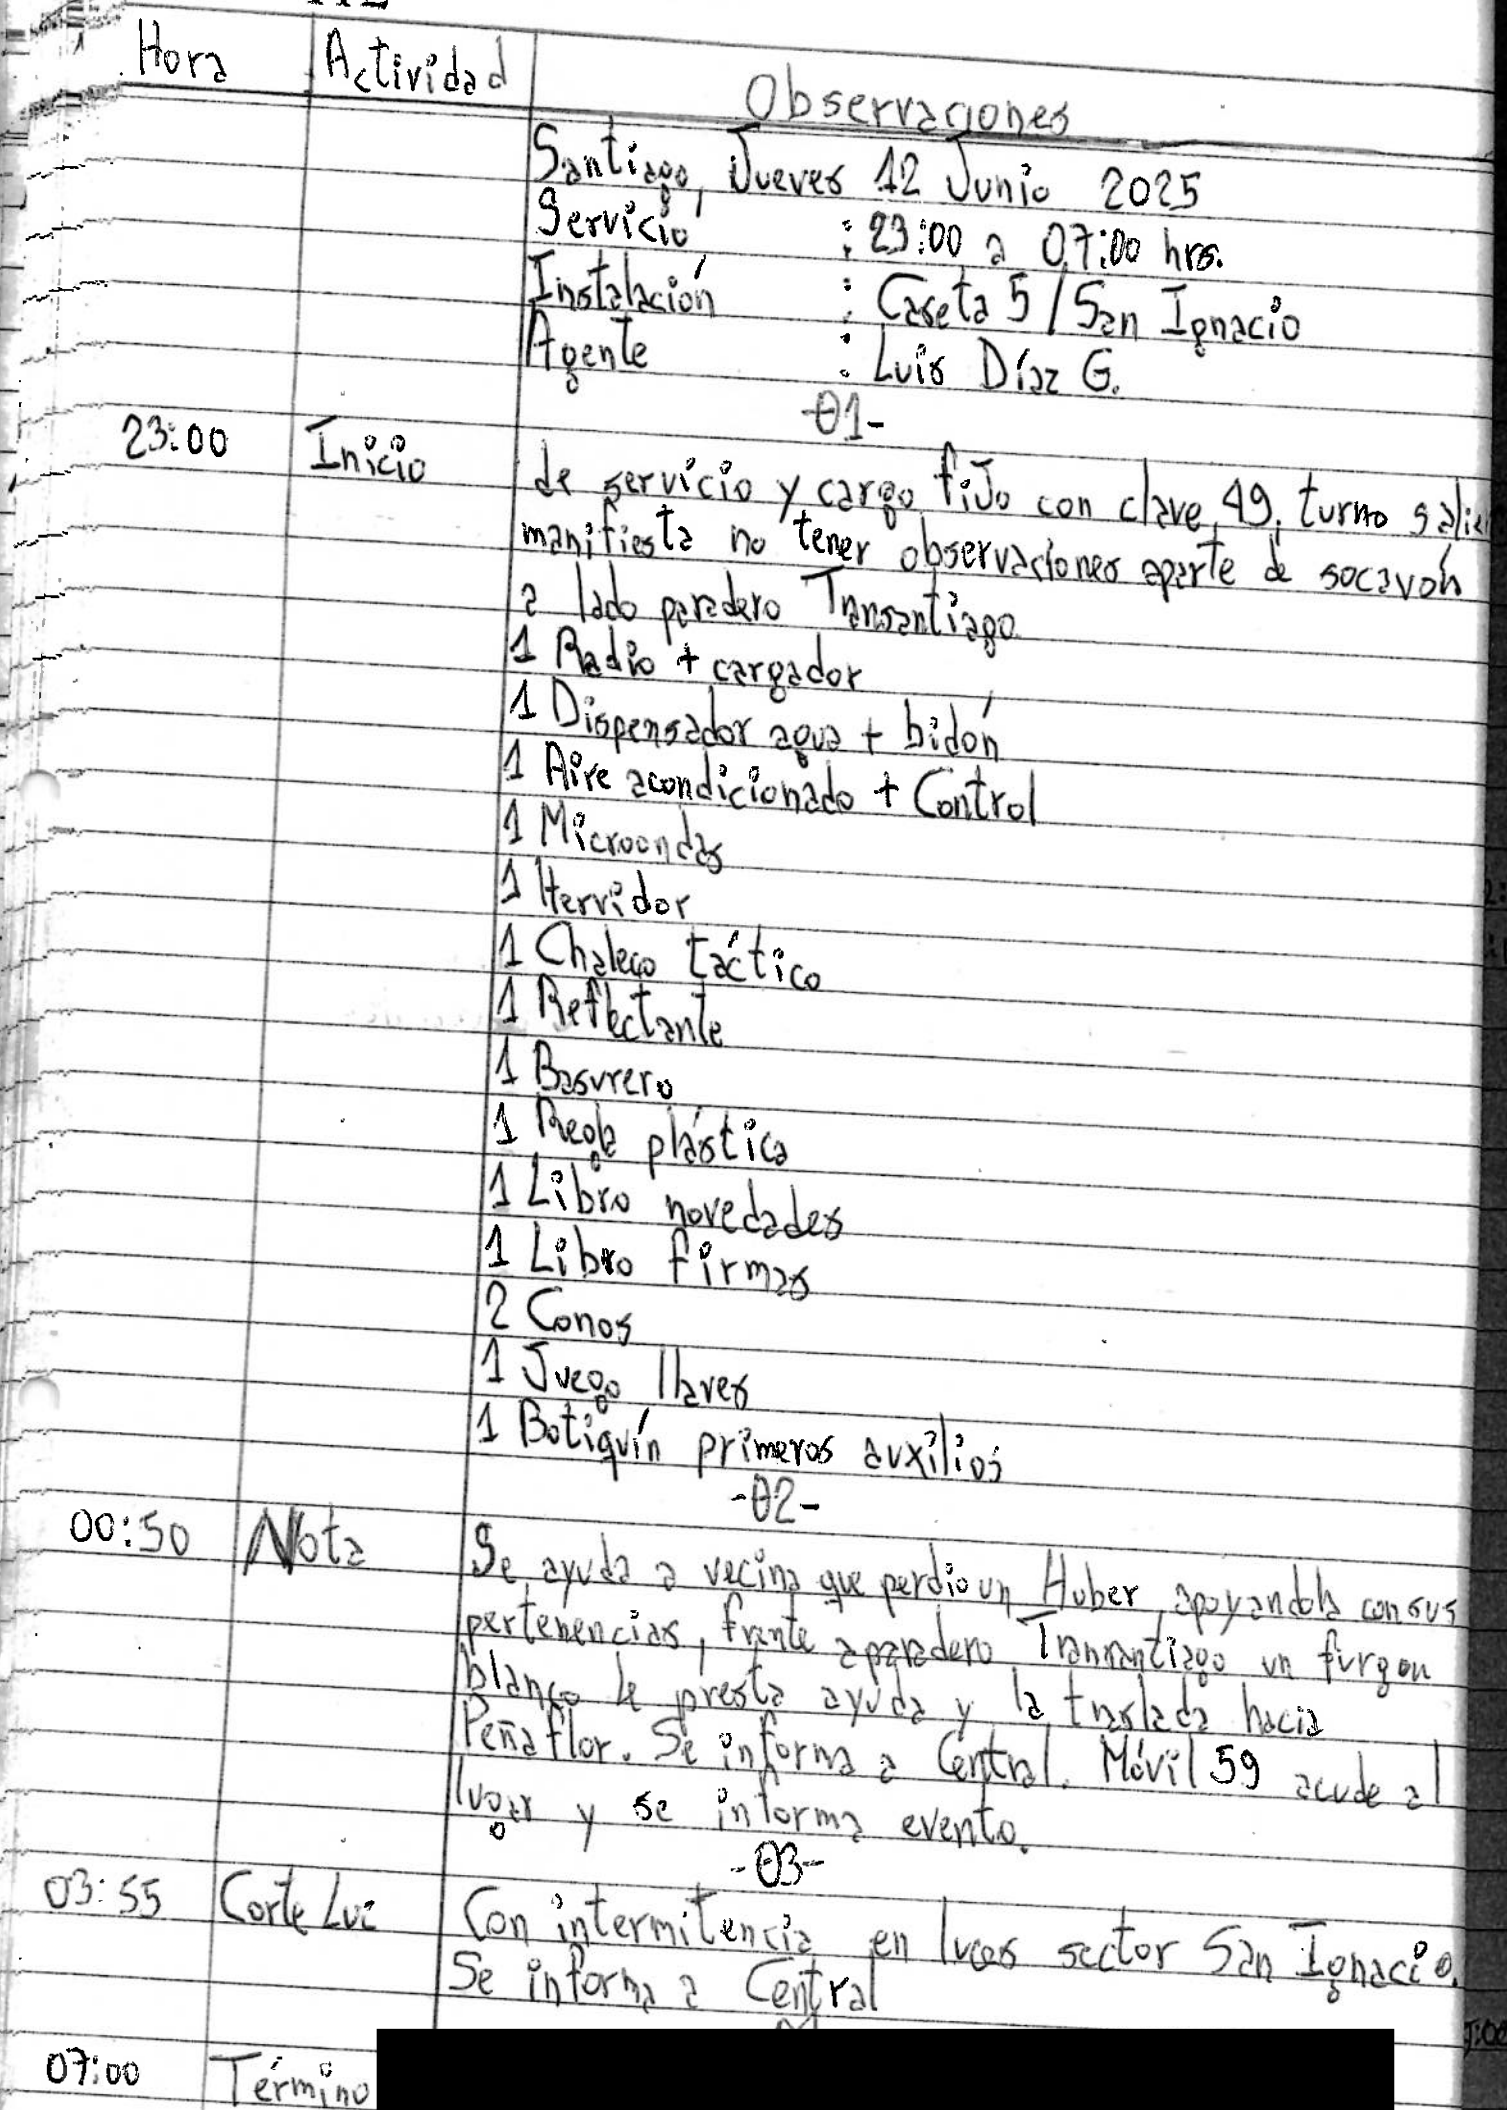 Hora Actividad Observaciones
Santiago, Jueves 12 Junio 2025
Servicio : 23:00 a 07:00 hrs.
Instalación : Caseta 5 / San Ignacio
Agente : Luis Díaz G.
-01-
23:00 Inicio de servicio y cargo fijo con clave 49, turno salien
manifiesta no tener observaciones aparte de socavón
a lado paradero Transantiago
1 Radio + cargador
1 Dispensador agua + bidón
1 Aire acondicionado + Control
1 Microondas
1 Hervidor
1 Chaleco táctico
1 Reflectante
1 Basurero
1 Regla plástica
1 Libro novedades
1 Libro firmas
2 Conos
1 Juego llaves
1 Botiquín primeros auxilios
-02-
00:50 Nota Se ayuda a vecina que perdio un Huber, apoyandola con sus
pertenencias, frente a paradero Transantiago un furgon
blanco le presta ayuda y la traslada hacia
Peñaflor. Se informa a Central. Móvil 59 acude al
lugar y se informa evento.
-03-
03:55 Corte Luz Con intermitencia en luces sector San Ignacio.
Se informa a Central
07:00 Término